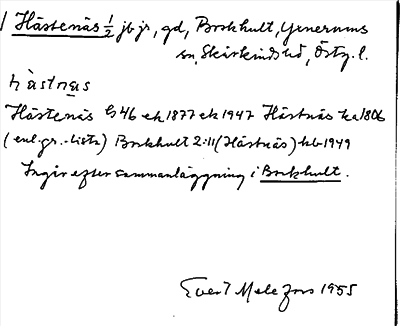 Hästenäs 1/2 jb jr, gd, Borkhult, Yxnerums
sn, Skärkinds hd, Östg. l.
hàstnęs
Hästenäs G46 ek 1877 ek 1947 Hästnäs ka 1806
(enl. gr.-lista) Borkhult 2:11 (Hästnäs) kb 1949
Ingår efter sammanläggning i Borkhult.
Evert Melefors 1955